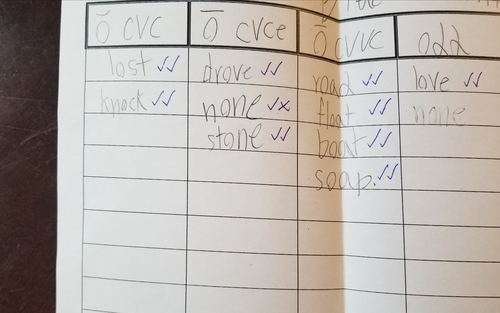 ŏ CVC ō CVCe ō CVVC odd
lost ✓✓ drove ✓✓ road ✓✓ love ✓✓
knock ✓✓ none ✓x float ✓✓ none
stone ✓✓ boat ✓✓
soap. ✓✓